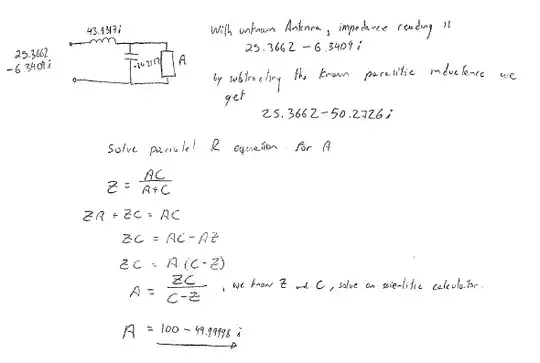 43.9317i
With unknown Antenna, impedance reading is
25.3662 - 6.3409i
25.3662
-6.3409i
A
by subtracting the known parasitic inductance we
get
25.3662 - 50.2726i
Solve parralel R equation for A
Z = AC / A+C
ZA + ZC = AC
ZC = AC - AZ
ZC = A (C-Z)
A = ZC / C-Z , we know Z and C, solve on scientific calculator.
A = 100 - 49.99998 i